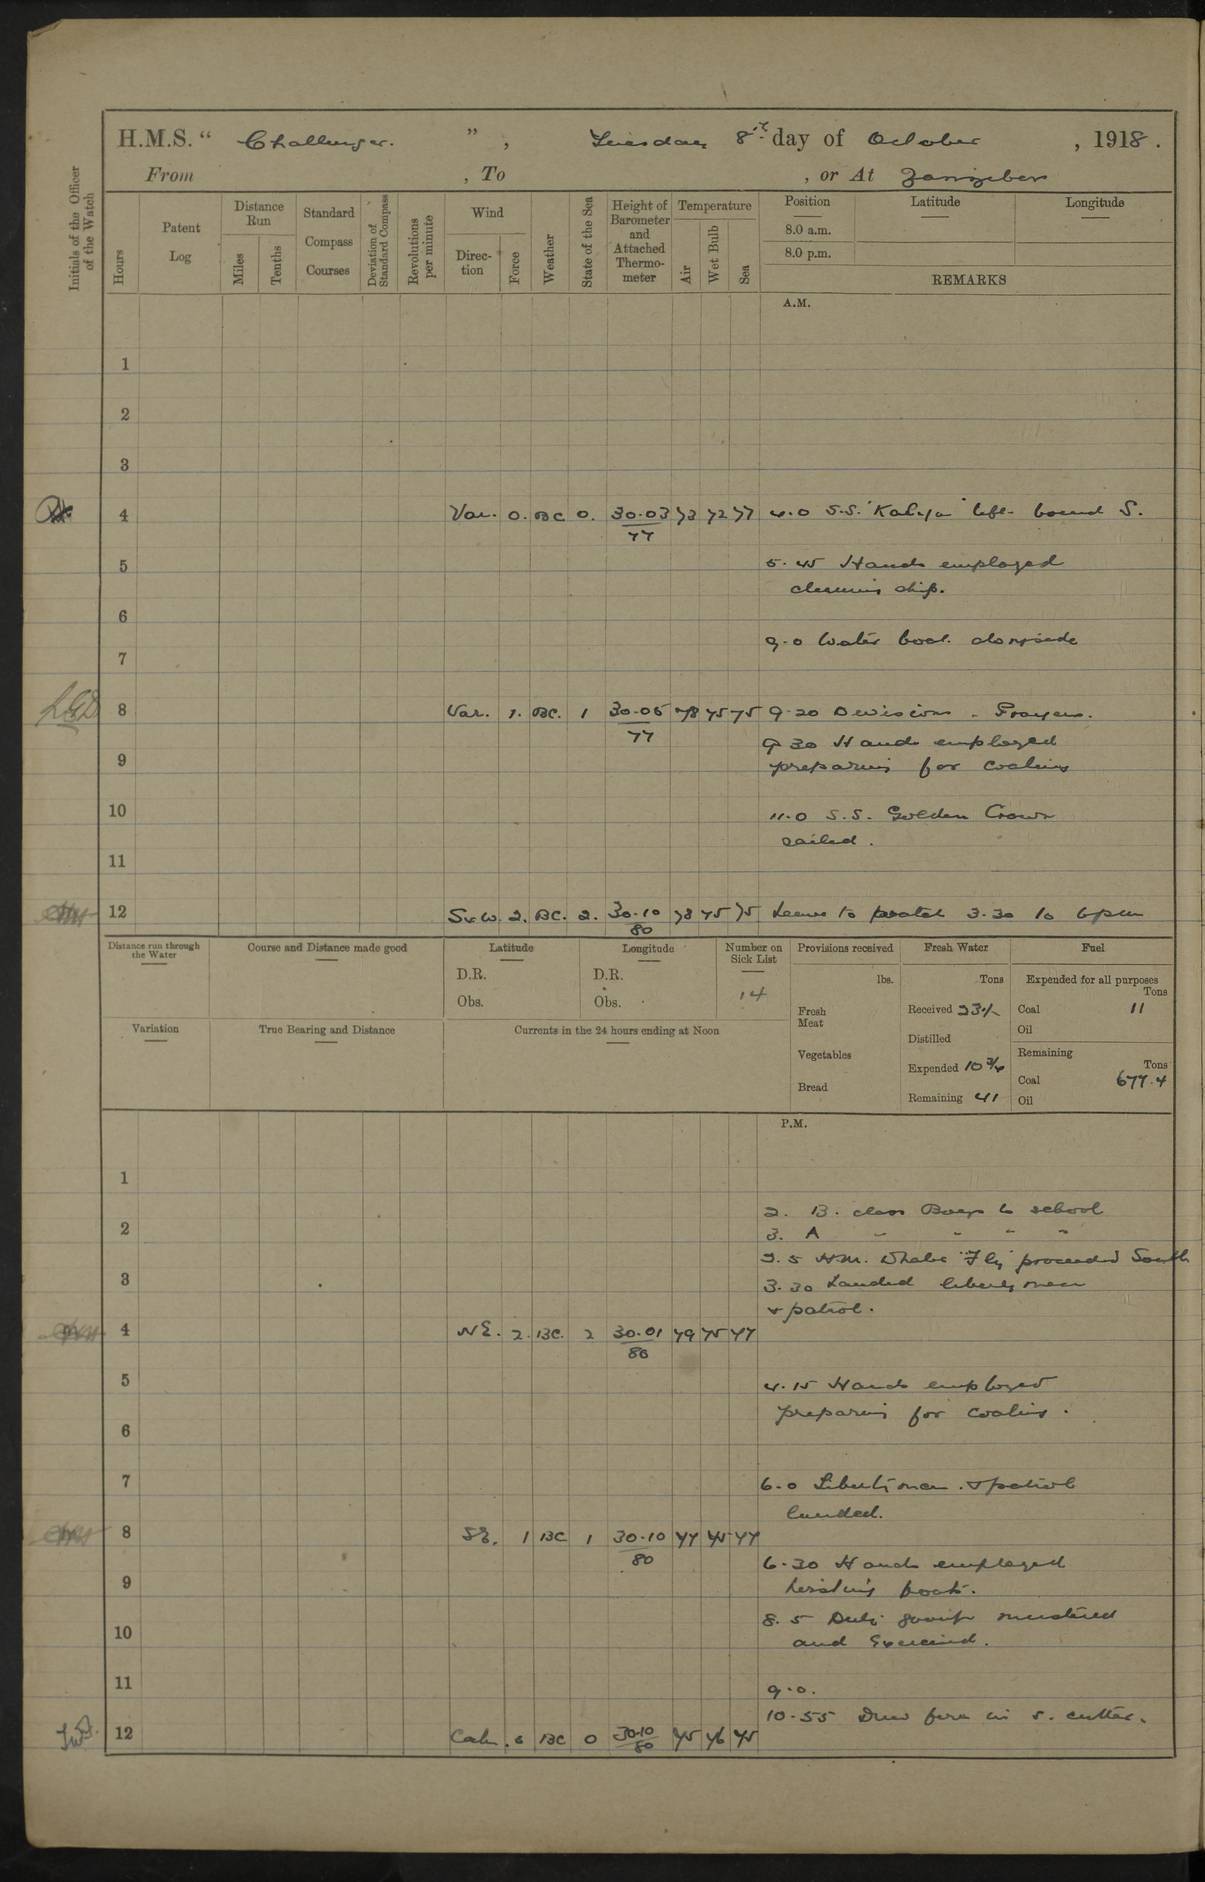 H.M.S. " Challenger. ", Tuesday 8th day of October, 1918.
From , To , or At Zanzibar
Initials of the Officer of the Watch
Hours
Patent Log
Distance Run
Miles
Tenths
Standard Compass Courses
Deviation of Standard Compass
Revolutions per minute
Wind
Direction
Force
Weather
State of the Sea
Height of Barometer and Attached Thermometer
Temperature
Air
Wet Bulb
Sea
Position
8.0 a.m.
8.0 p.m.
Latitude
Longitude
REMARKS
A.M.
1
2
3
4 Var. 0. BC 0. 30.03 73 72 77 4.0 S.S. " left bound S.
77
5 5.45 Hands employed
cleaning ship.
6
9.0 Water boat alongside
7
8 Var. 1. BC. 1 30.05 78 75 75 9.20 Divisions - Prayers.
77
9.30 Hands employed
9 preparing for coaling
10 11.0 S.S. Golden Crown
sailed.
11
12 SxW. 2. BC. 2. 30.10 78 75 75 Leave to 3.30 to 6pm
80
Distance run through the Water
Course and Distance made good
Latitude
D.R.
Obs.
Longitude
D.R.
Obs.
Number on Sick List
14
Provisions received
lbs.
Fresh Meat
Vegetables
Bread
Fresh Water
Tons
Received
Distilled
Expended 10 3/4
Remaining 41
Fuel
Expended for all purposes
Tons
Coal 11
Oil
Remaining
Tons
Coal 677.4
Oil
Variation
True Bearing and Distance
Currents in the 24 hours ending at Noon
P.M.
1
2. B. class Boys to school
2 3. A " " " "
3.5 H.M. Whaler "Fly" proceeded South
3 3.30 Landed liberty men
& patrol.
4 NE. 2. BC. 2 30.01 79 75 77
80
5 4.15 Hands employed
preparing for coaling.
6
7 6.0 Liberty men & patrol
landed.
8 SE. 1 BC 1 30.10 77 75 77
80
6.30 Hands employed
9 hoisting boats.
8.5 Duty group mustered
10 and Exercised.
11 9.0.
10.55 Drew fire in S. cutter.
12 Calm. 0 BC 0 30.10 75 76 75
80